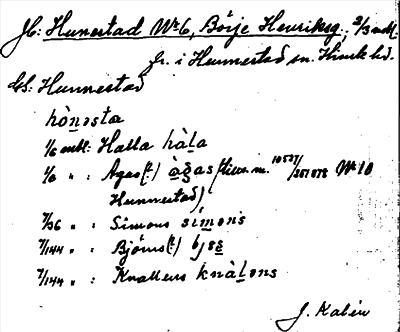 Jb: Hunnestad Nr 6, Börje Henriksg., 2/3 mtl.
fr. i Hunnestad sn. Himle hd.
Gd: Hunnestad
hònəsta
1/6 mtl: Halla hàla
1/6 " : Agas(?) àgas 10537/251078 Nr 10
Hunnestad)
7/36 " : Simons símons
7/144 " : Björns(?)
7/144 " : Knallens knàləns
J. Kalén